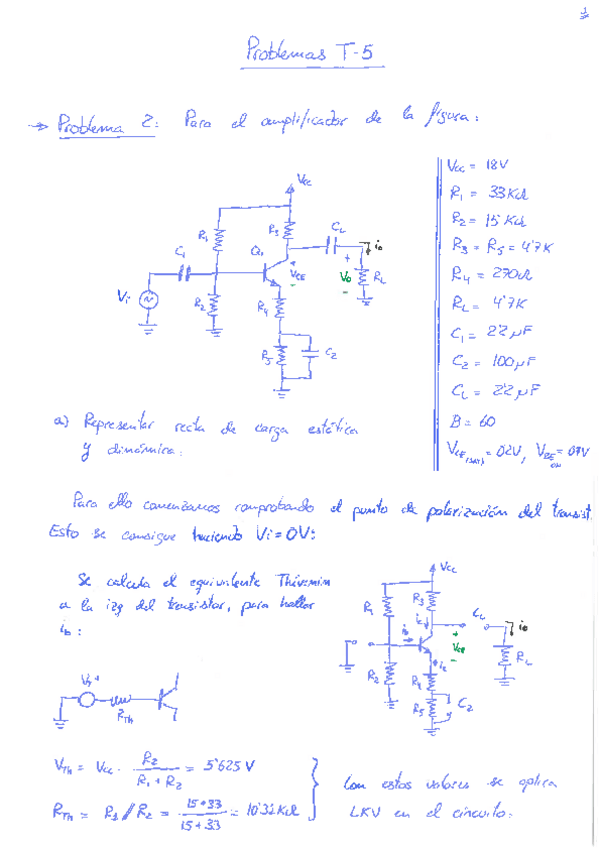 1
Problemas T-5
→ Problema 2: Para el amplificador de la figura:
Vcc
R1
R3
CL
io
C1
Q1
+
VCE
-
+
Vo
-
RL
Vi
R2
R4
R5
C2
Vcc = 18V
R1 = 33KΩ
R2 = 15KΩ
R3 = R5 = 4'7K
R4 = 270Ω
RL = 4'7K
C1 = 22μF
C2 = 100μF
CL = 22μF
B = 60
VCE(SAT) = 0'2V, VBE ON = 0'7V
a) Representar recta de carga estática
y dinámica:
Para ello comenzamos comprobando el punto de polarización del transist.
Esto se consigue haciendo Vi = 0V:
Se calcula el equivalente Thévenin
a la izq del transistor, para hallar
ib:
Vcc
R1
R3
ic
CL
io
ib
+
VCE
-
ie
RL
R2
R4
R5
C2
Vth
RTh
VTh = Vcc · R2 / (R1 + R2) = 5'625 V
RTh = R1 // R2 = 15*33 / (15+33) = 10'31KΩ
Con estos valores se aplica
LKV en el circuito: